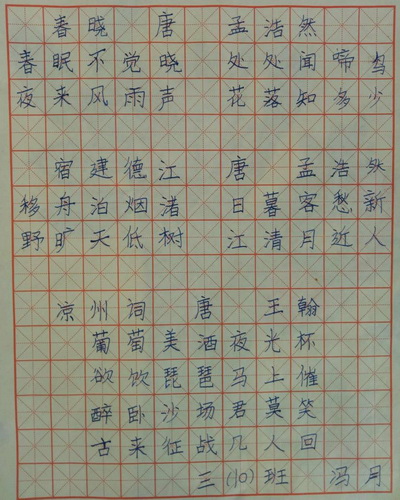 春晓 唐 孟浩然
春眠不觉晓 处处闻啼鸟
夜来风雨声 花落知多少
宿建德江 唐 孟浩然
移舟泊烟渚 日暮客愁新
野旷天低树 江清月近人
凉州词 唐 王翰
葡萄美酒夜光杯
欲饮琵琶马上催
醉卧沙场君莫笑
古来征战几人回
三(10)班 冯月